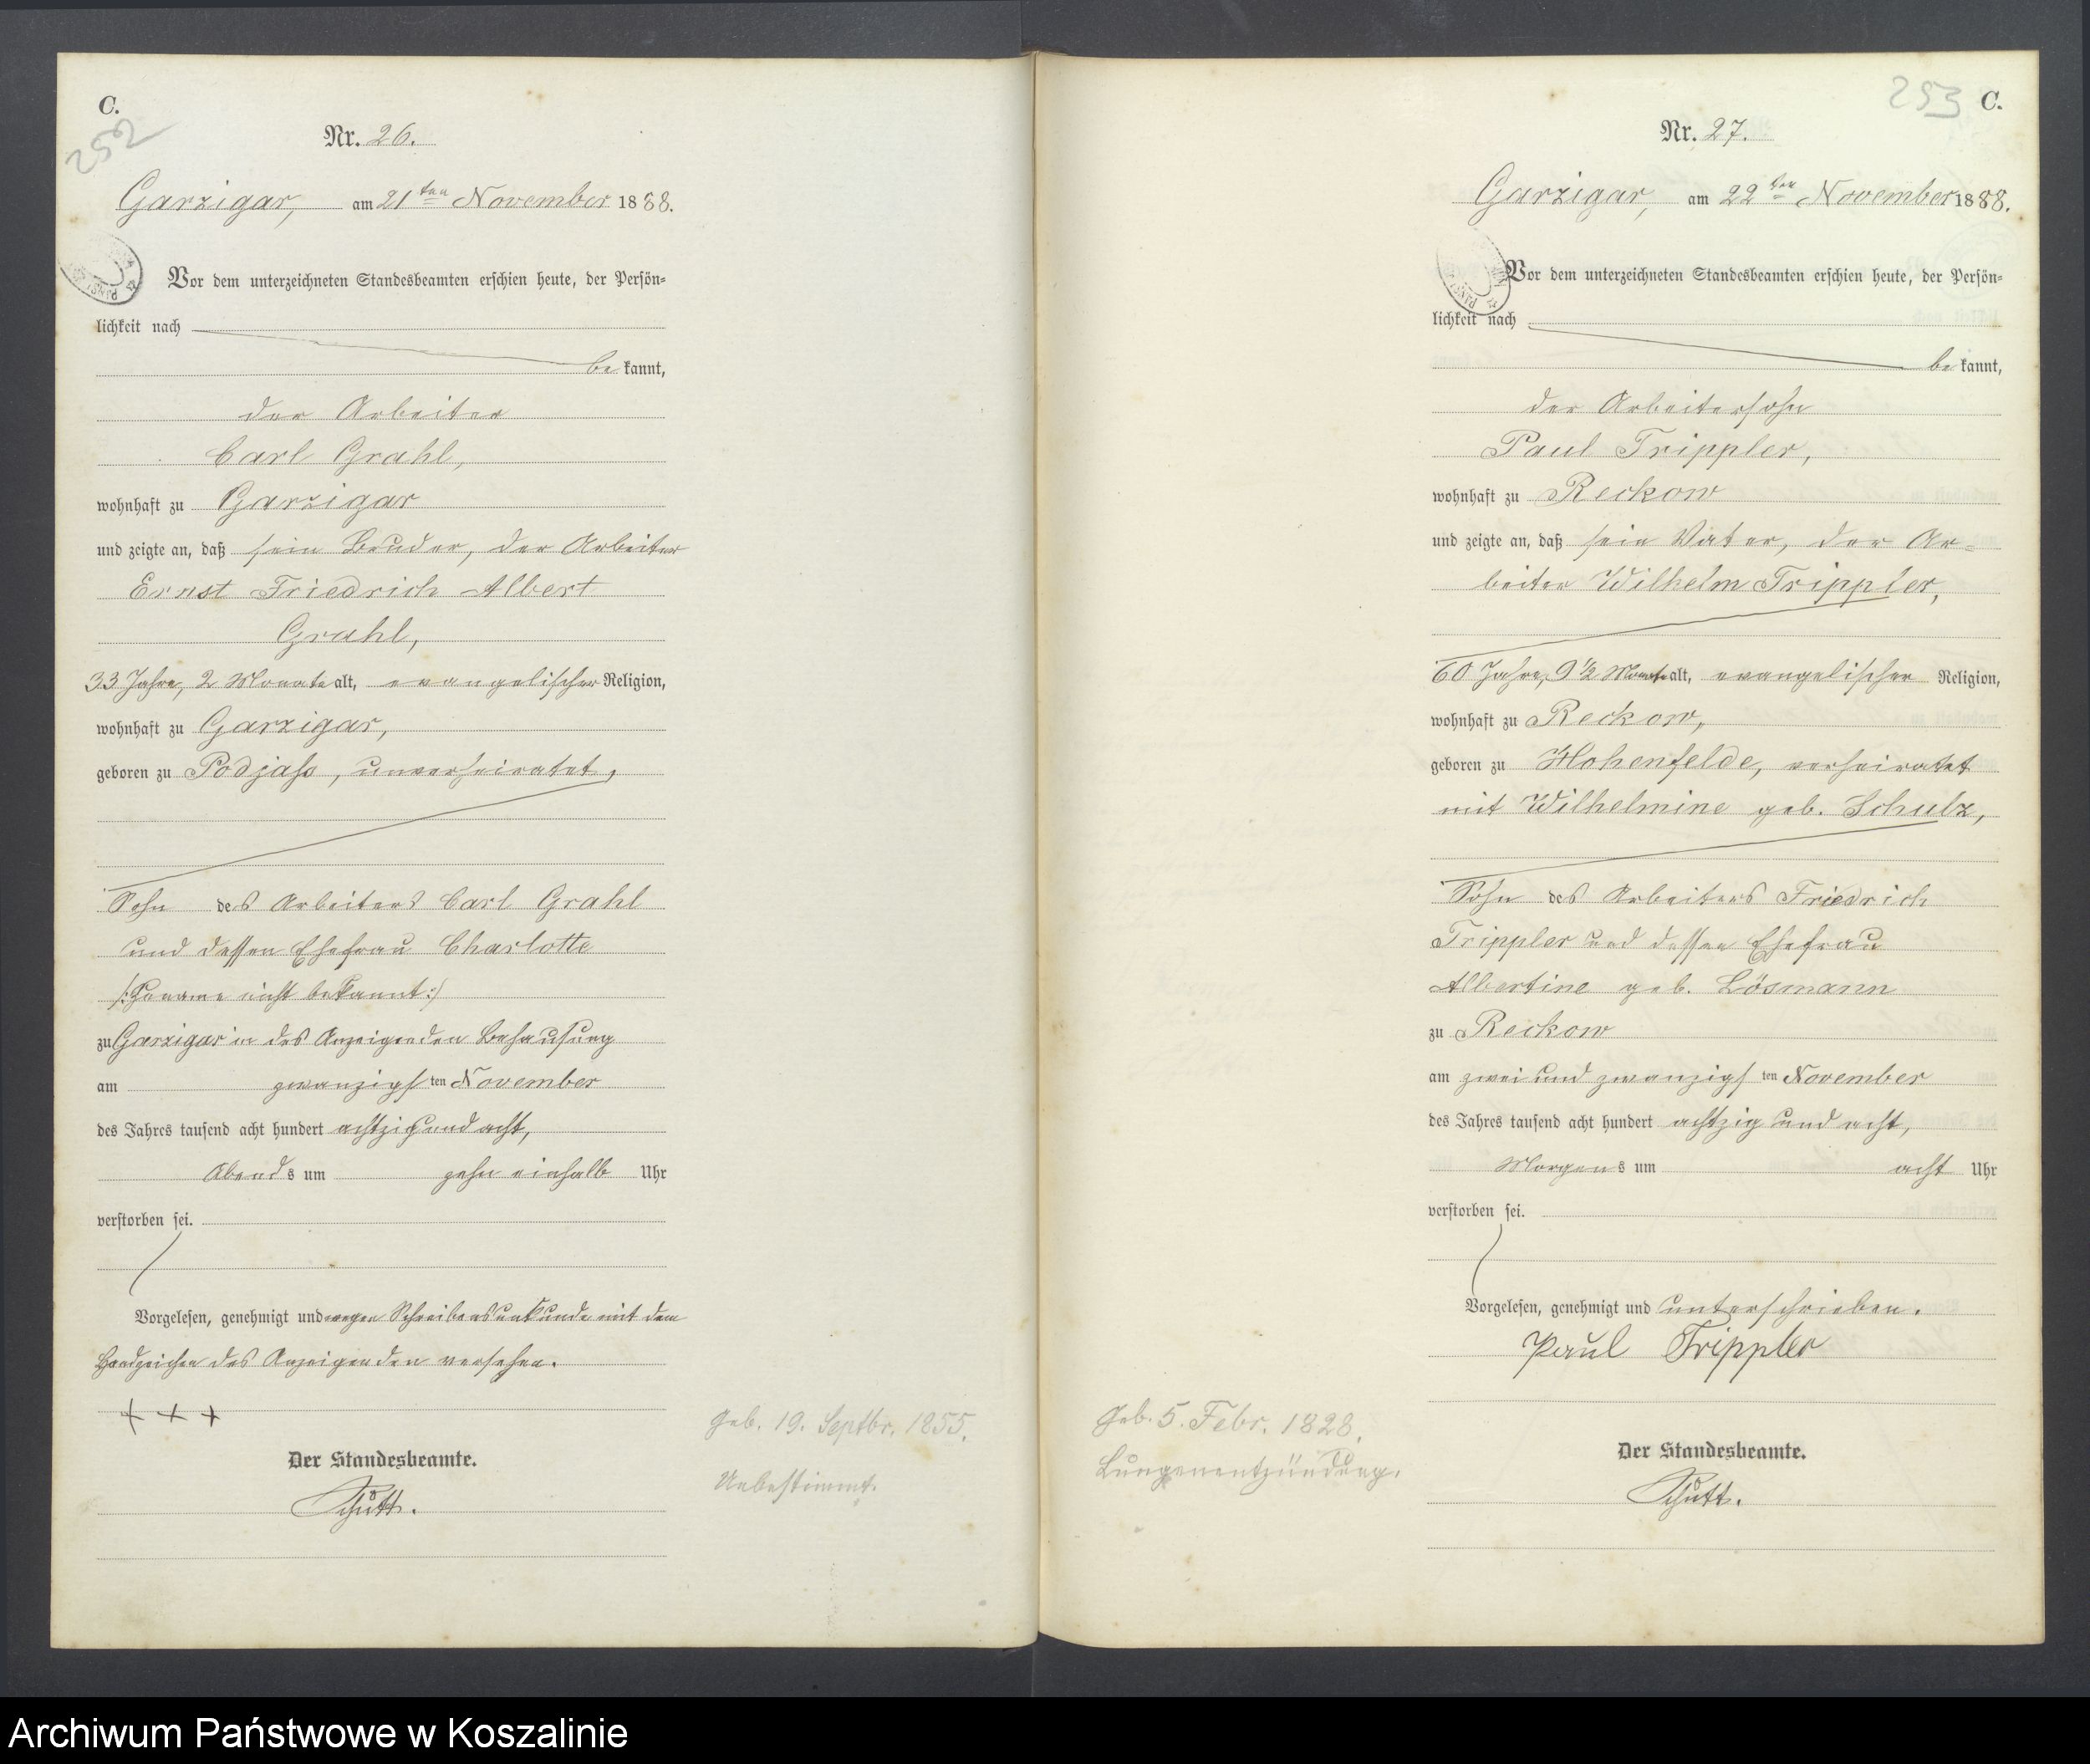 C.
252
Nr. 26.
Garzigar, am 21ten November 1888.
Vor dem unterzeichneten Standesbeamten erschien heute, der Persön-
lichkeit nach
bekannt,
der Arbeiter
Carl Grahl,
wohnhaft zu Garzigar
und zeigte an, daß sein Bruder, der Arbeiter
Ernst Friedrich Albert
Grahl,
33 Jahre, 2 Monate alt, evangelischer Religion,
wohnhaft zu Garzigar,
geboren zu Podjaß, unverheiratet,
Sohn des Arbeiters Carl Grahl
und dessen Ehefrau Charlotte
/:Zuname nicht bekannt:/
zu Garzigar in des Anzeigenden Behausung
am zwanzigsten November
des Jahres tausend acht hundert achtzig und acht,
Abends um zehn einhalb Uhr
verstorben sei.
Vorgelesen, genehmigt und wegen Schreibensunkunde mit dem
Handzeichen des Anzeigenden versehen.
+ + +
Der Standesbeamte.
Schütt.
Geb. 19. Septbr. 1855.
Unbestimmt.
253 C.
Nr. 27.
Garzigar, am 22ten November 1888.
Vor dem unterzeichneten Standesbeamten erschien heute, der Persön-
lichkeit nach
bekannt,
der Arbeitersohn
Paul Trippler,
wohnhaft zu Reckow
und zeigte an, daß sein Vater, der Ar-
beiter Wilhelm Trippler,
60 Jahre, 9 1/2 Monate alt, evangelischer Religion,
wohnhaft zu Reckow,
geboren zu Hohenfelde, verheiratet
mit Wilhelmine geb. Schulz,
Sohn des Arbeiters Friedrich
Trippler und dessen Ehefrau
Albertine geb. Lösmann
zu Reckow
am zwei und zwanzigsten November
des Jahres tausend acht hundert achtzig und acht,
Morgens um acht Uhr
verstorben sei.
Vorgelesen, genehmigt und unterschrieben.
Paul Trippler
Der Standesbeamte.
Schütt.
Geb. 5. Febr. 1828.
Lungenentzündung.
Archiwum Państwowe w Koszalinie